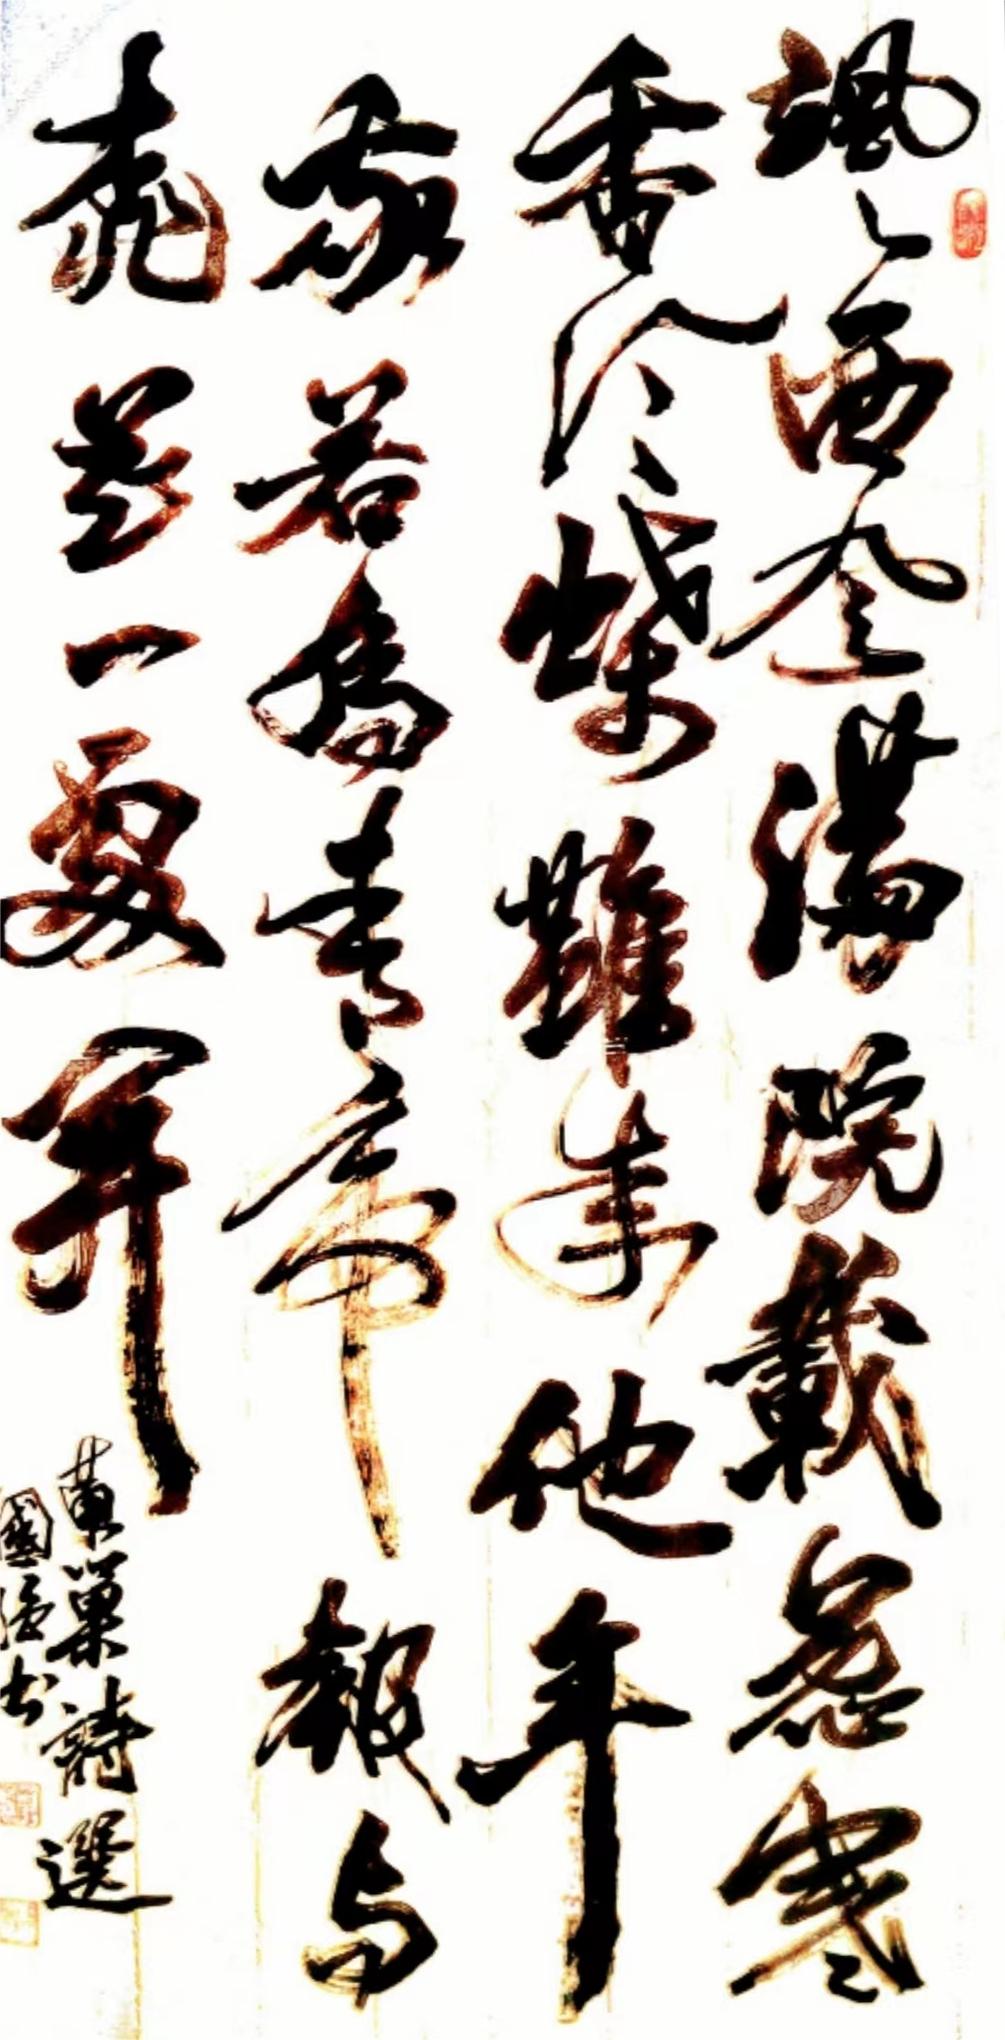 颯々西風滿院載蕊寒
香冷蝶難來他年
我若為青帝報与
桃花一處開
黃巢詩選
國强书